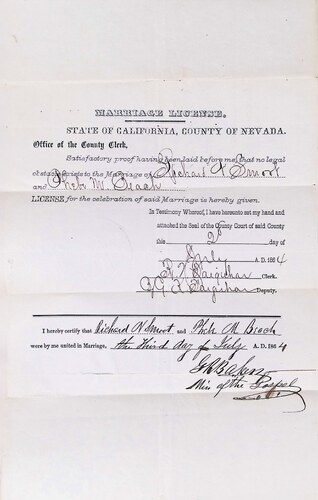 MARRIAGE LICENSE.
STATE OF CALIFORNIA, COUNTY OF NEVADA.
Office of the County Clerk,
Satisfactory proof having been laid before me that no legal
obstacle exists to the Marriage of Richard N Smoot
and Pheb M. Beach
LICENSE for the celebration of said Marriage is hereby given.
In Testimony Whereof, I have hereunto set my hand and
attached the Seal of the County Court of said County
this 2d day of
July A. D. 1864
Clerk.
Deputy.
I hereby certify that Richard N Smoot and Pheb M. Beach
were by me united in Marriage, the third day of July A. D. 1864
Min of the Gospel